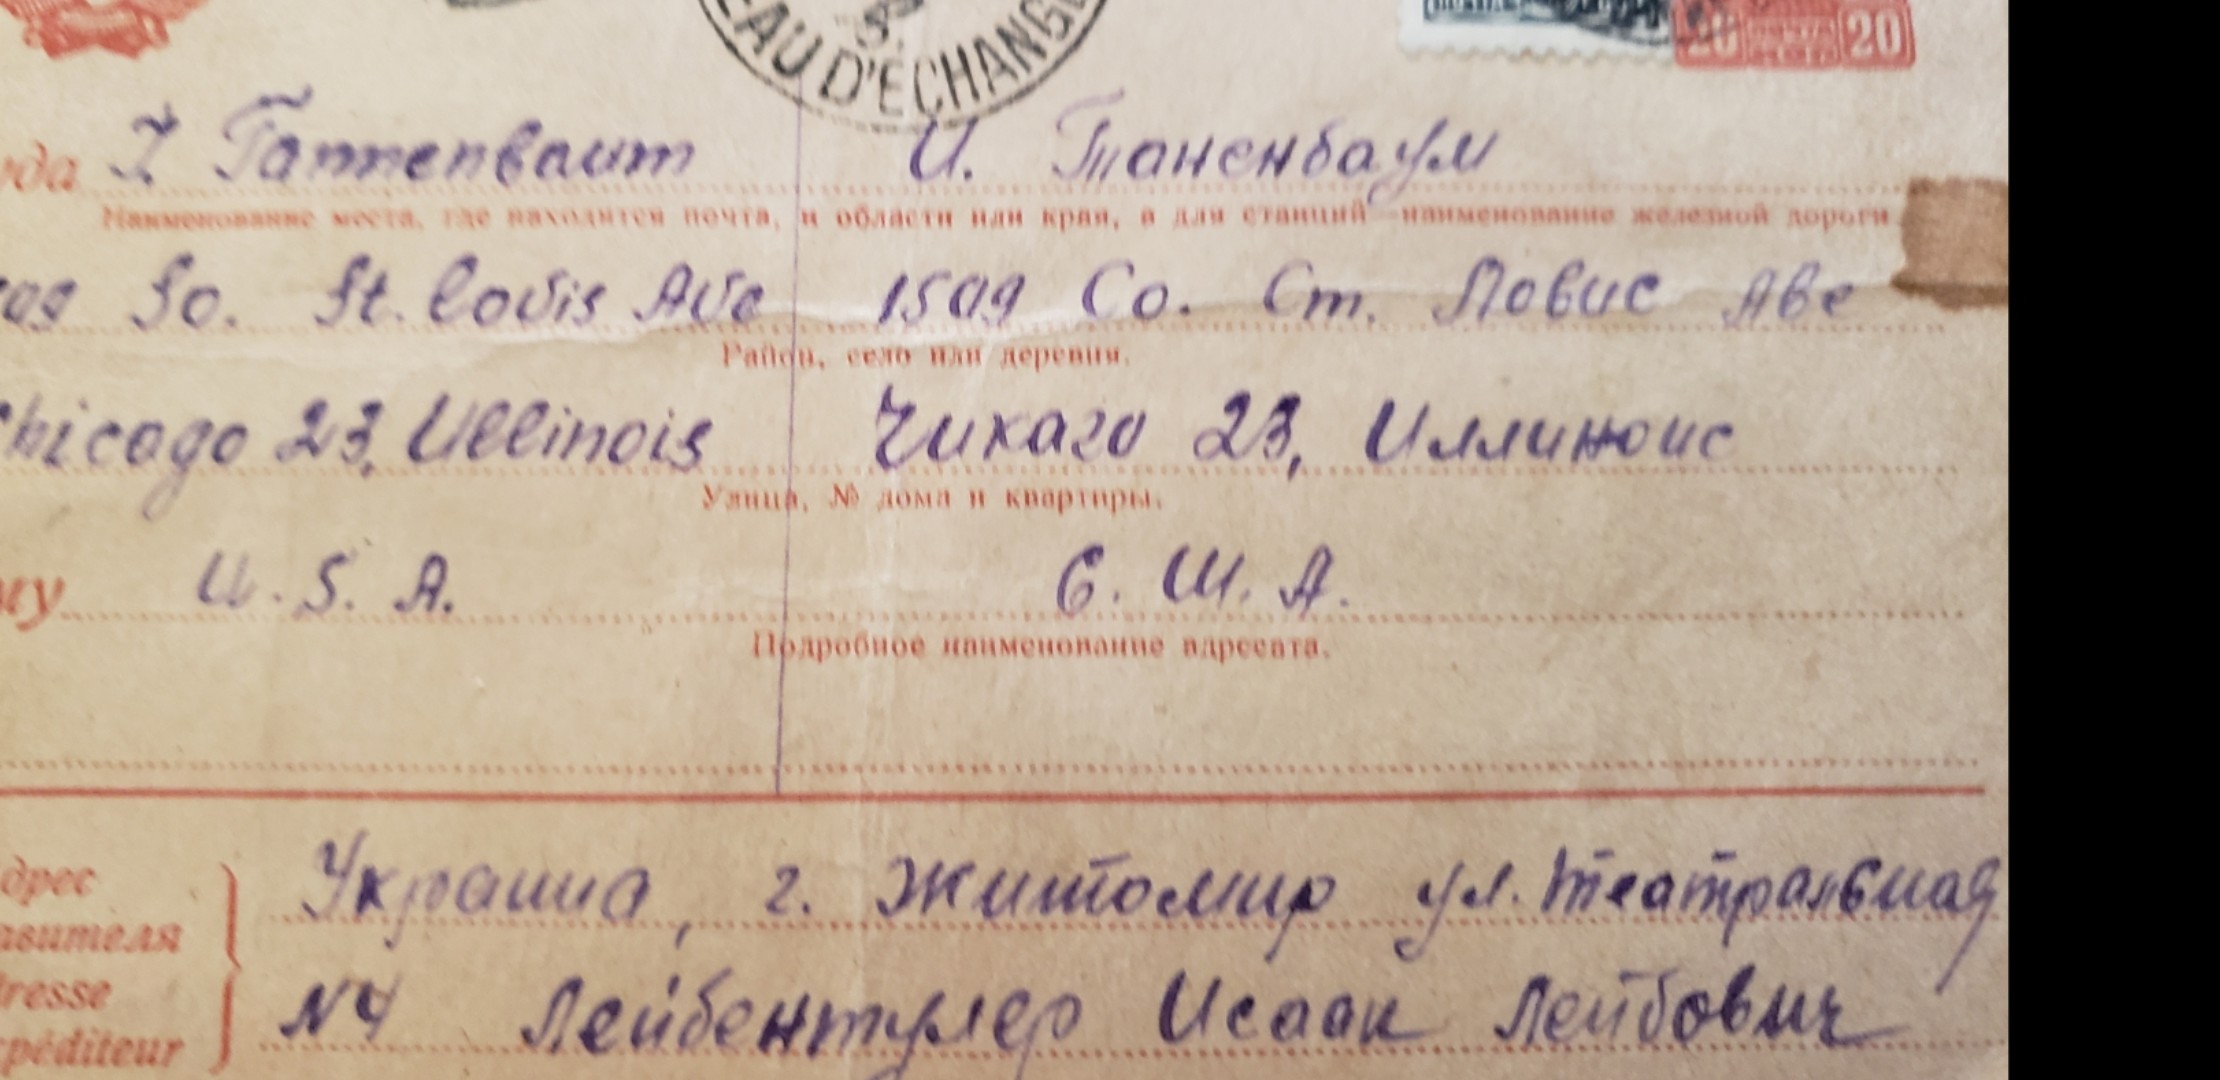 EAU D'ÉCHANG
20 20
ода I Tannenbaum И. Таненбаум
Наименование места, где находится почта, и области или края, а для станций—наименование железной дороги
09 So. St. Lovis Ave 1509 Со. Ст. Ловис Аве
Район, село или деревня.
Chicago 23, Illinois Чикаго 23, Иллиноис
Улица, № дома и квартиры.
му U. S. A. С. Ш. А.
Подробное наименование адресата.
дрес Украина, г. Житомир ул. Театральная
авителя
dresse N4 Лейбентулер Исаак Лейбович
xpéditeur